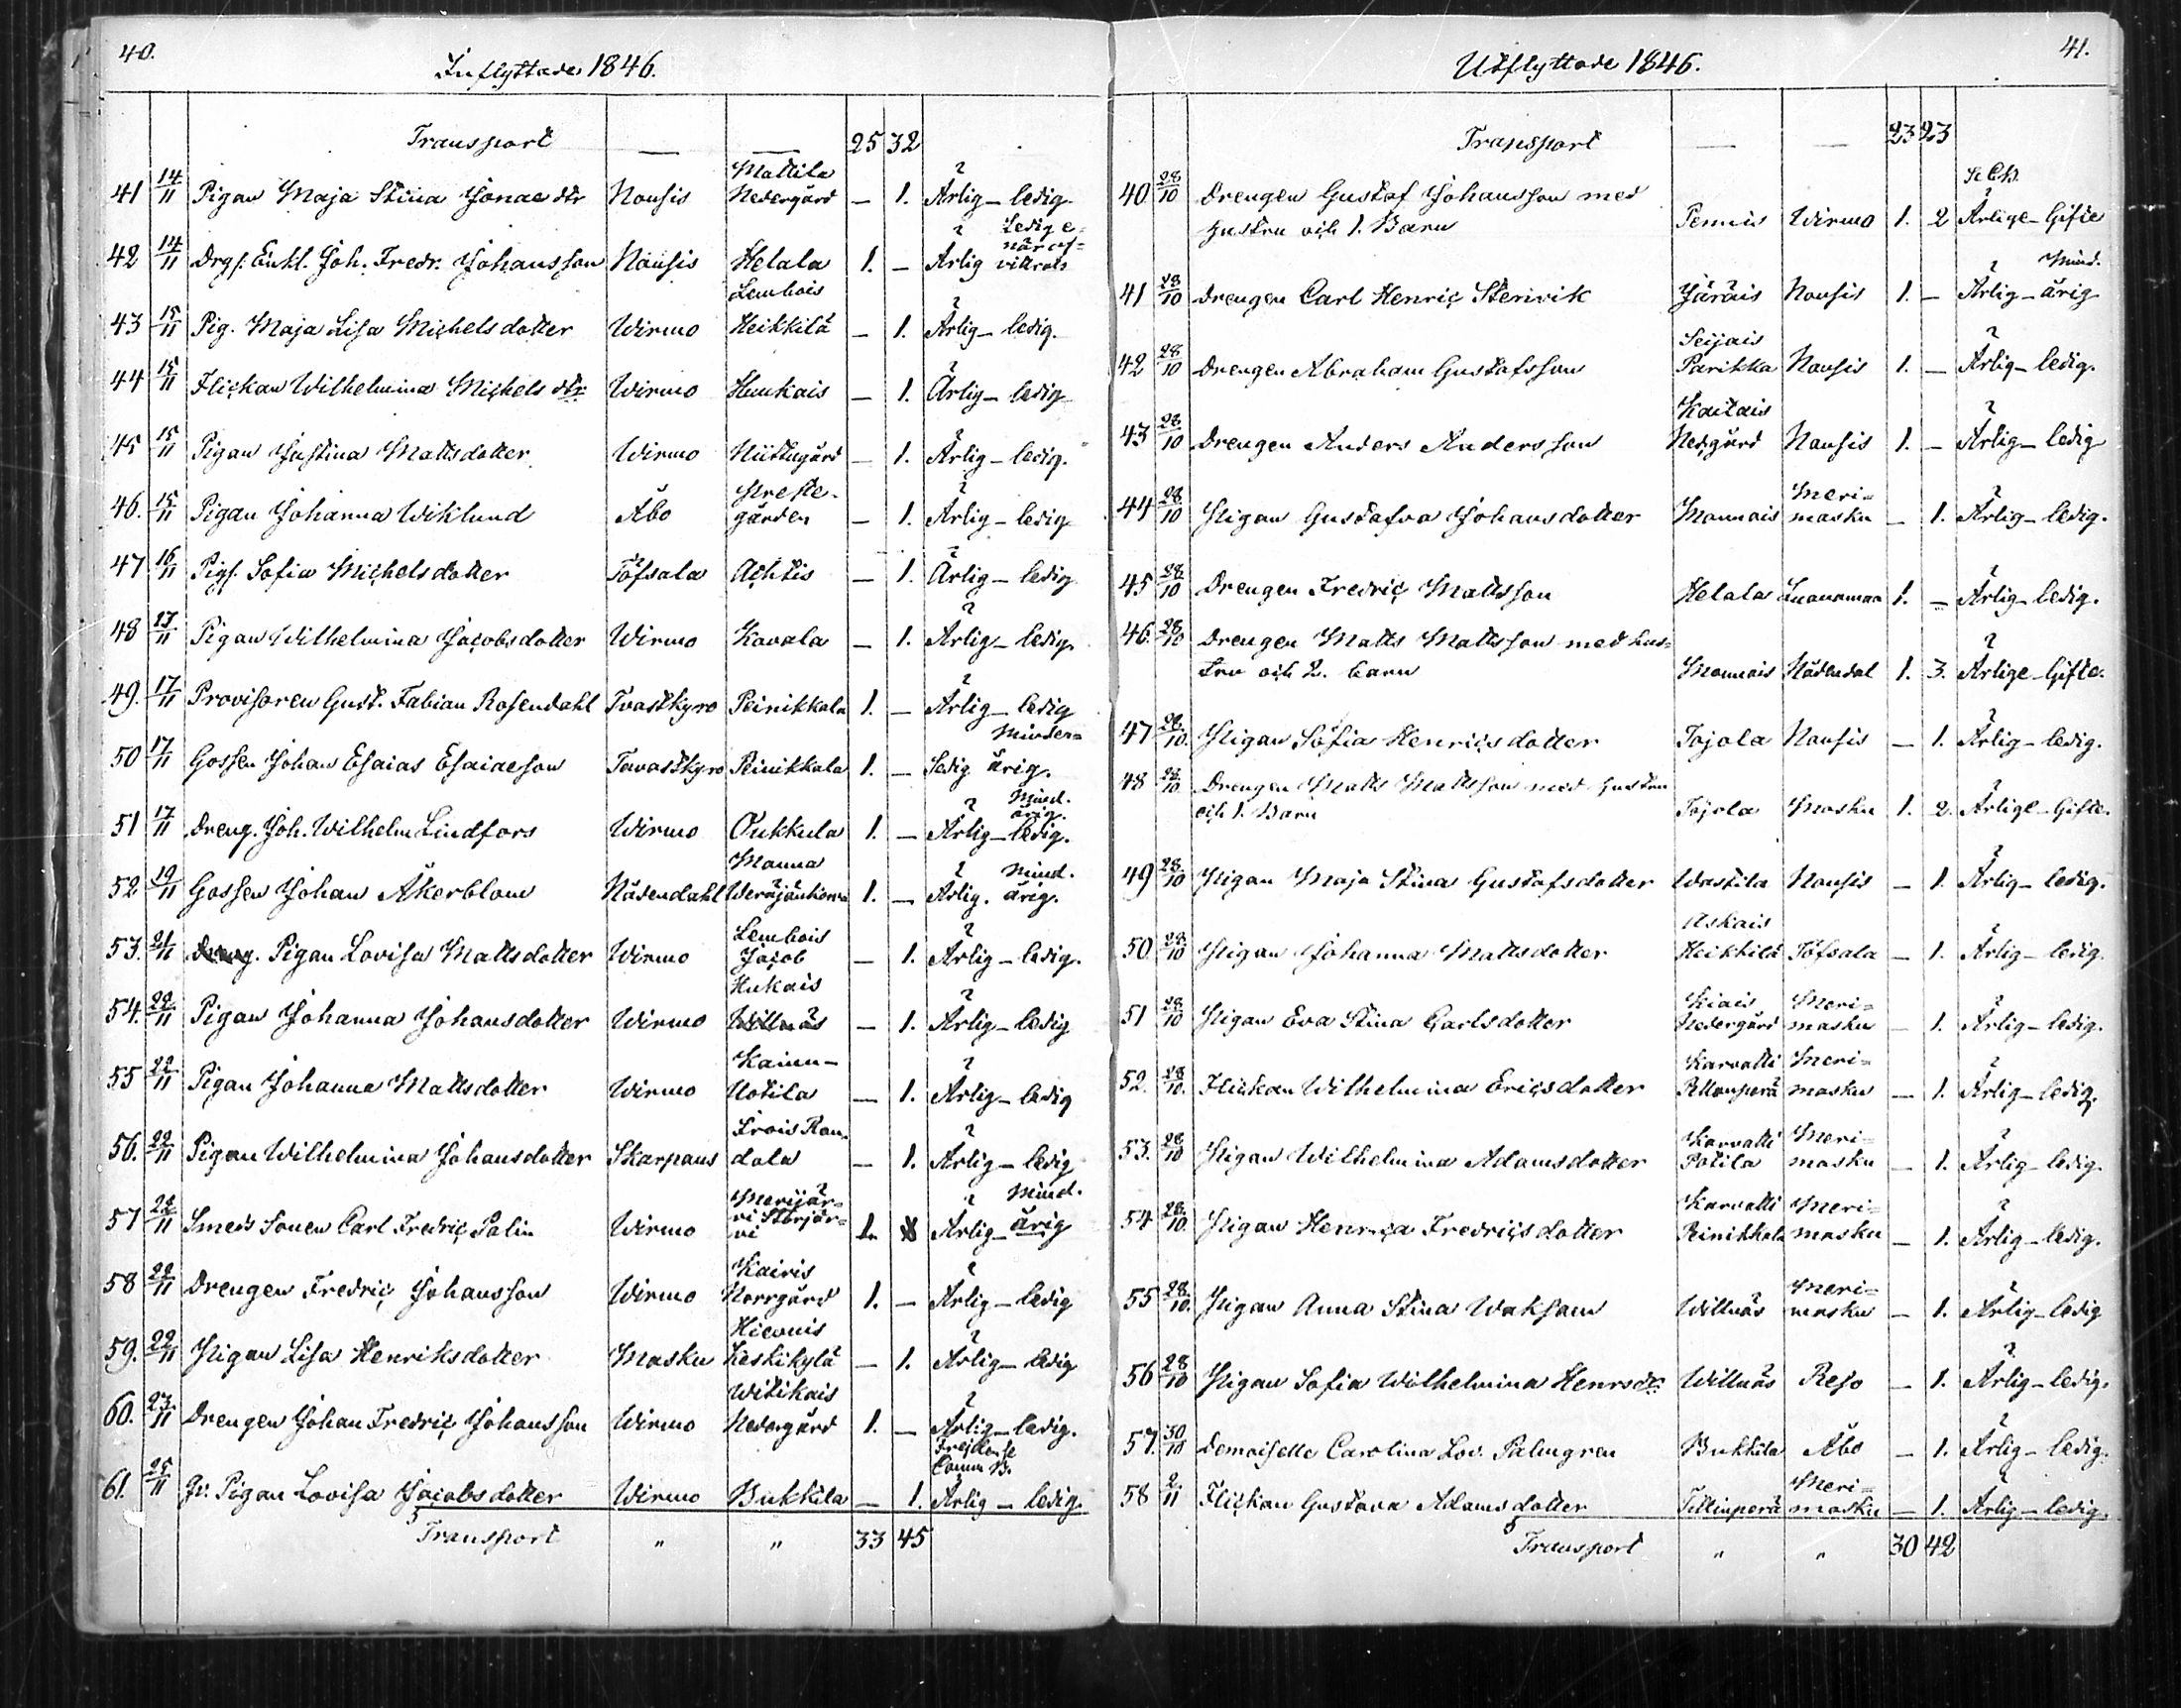 40.
Inflyttade 1846.
Transport — — 25 32
41 14/11 Pigan Maja Stina Jonae dtr Nousis Mattila Nedergård — 1. Ärlig – ledig.
42 14/11 Drgs. Enkl. Joh. Fredr. Johansson Nousis Helala 1. — Ärlig
43 15/11 Pig. Maja Lisa Michelsdotter Wirmo Lembois Heikkilä — 1. Ärlig – ledig.
44 15/11 Flickan Wilhelmina Michels dtr Wirmo Hunkais — 1. Ärlig – ledig
45 15/11 Pigan Justina Mattsdotter Wirmo Niittugård — 1. Ärlig – ledig.
46. 15/11 Pigan Johanna Wiklund Åbo Preste- gården — 1. Ärlig – ledig
47 16/11 Pigs. Sofia Michelsdotter Töfsala Achtis — 1. Ärlig – ledig
48 17/11 Pigan Wilhelmina Jacobsdotter Wirmo Kavala — 1. Ärlig – ledig.
49. 17/11 Provisoren Gust. Fabian Rosendahl Tvastkyro Peinikkala 1. — Ärlig – ledig
50 17/11 Gossen Johan Esaias Esaiaeson Tavastkyro Peinikkala 1. — Ledig Minder= årig.
51 17/11 Dreng. Joh. Wilhelm Lindfors Wirmo Pukkula 1. — Ärlig – ledig. Mind. årig.
52 19/11 Gossen Johan Åkerblom Nådendahl Manna 1. — Ärlig. Mind. årig.
53. 21/11 Pigan Lovisa Mattsdotter Wirmo Lembois Jacob — 1. Ärlig – ledig.
54. 22/11 Pigan Johanna Johansdotter Wirmo Hukais Willnäs — 1. Ärlig – ledig
55 22/11 Pigan Johanna Mattsdotter Wirmo Kainu- Uotila — 1. Ärlig – ledig
56. 22/11 Pigan Wilhelmina Johansdotter Skarpans dala — 1. Ärlig – ledig
57 22/11 Smeds Sonen Carl Fredric Palin Wirmo Merijär= vi Storjär= vi 1. Ärlig – Mind. årig
58 22/11 Drengen Fredric Johansson Wirmo Kairis Norrgård 1. — Ärlig – ledig
59. 22/11 Pigan Lisa Henriksdotter Masku Hiervis Keskikylä — 1. Ärlig – ledig
60. 23/11 Drengen Johan Fredric Johansson Wirmo Witikais Nedergård 1. — Ärlig – ledig.
61. 25/11 Pigan Lovisa Jacobsdotter Wirmo Bukkila — 1. Ärlig – ledig.
Transport " " 33 45
41.
Utflyttade 1846.
Transport — — 23 23
40. 28/10 Drengen Gustaf Johansson med
hustru och 1. Barn Pemis Wirmo 1. 2 Ärlige – Gifte
41 28/10 Drengen Carl Henric Stenvik Järäis Nousis 1. — Ärlig – Mind. årig
42 28/10 Drengen Abraham Gustafsson Seijais Parikka Nousis 1. — Ärlig – ledig.
43 28/10 Drengen Anders Andersson Kaitais Nedgård Nousis 1. — Ärlig – ledig
44 28/10 Pigan Gustafva Johansdotter Monnais Meri= masku — 1. Ärlig – ledig.
45 28/10 Drengen Fredric Mattsson Helala 1. — Ärlig – ledig.
46. 28/10 Drengen Matts Mattsson med hus=
tru och 2. barn Monnais Nådendal 1. 3. Ärlige – Gifte.
47 28/10. Pigan Sofia Henricsdotter Tojola Nousis — 1. Ärlig – ledig.
48 28/10. Drengen Matts Mattsson med hustru
och 1. Barn Tojola Masku 1. 2. Ärlige – Gifte.
49 28/10 Pigan Maja Stina Gustafsdotter Wastila Nousis — 1. Ärlig – ledig.
50. 28/10 Pigan Johanna Mattsdotter Askais Heikkilä Töfsala — 1. Ärlig – ledig.
51 28/10 Pigan Eva Stina Carlsdotter Kiais Nedergård Meri= masku — 1. Ärlig – ledig.
52. 28/10. Flickan Wilhelmina Ericsdotter Karvatti Meri= masku — 1. Ärlig – ledig.
53. 28/10 Pigan Wilhelmina Adamsdotter Karvatti Potila Meri= masku — 1. Ärlig – ledig.
54 28/10. Pigan Henrica Fredricsdotter Karvatti Peinikkala Meri= masku — 1. Ärlig – ledig.
55 28/10. Pigan Anna Stina Waksam Willnäs Meri= masku — 1. Ärlig – ledig
56 28/10 Pigan Sofia Wilhelmina Henrsdr. Willnäs Reso — 1. Ärlig – ledig.
57. 30/10 Demoiselle Carolina Lov. Palmgren Bukkila Åbo — 1. Ärlig – ledig.
58 2/11 Flickan Gustava Adamsdotter Tittinperä Meri= masku — 1. Ärlig – ledig.
Transport " " 30 42